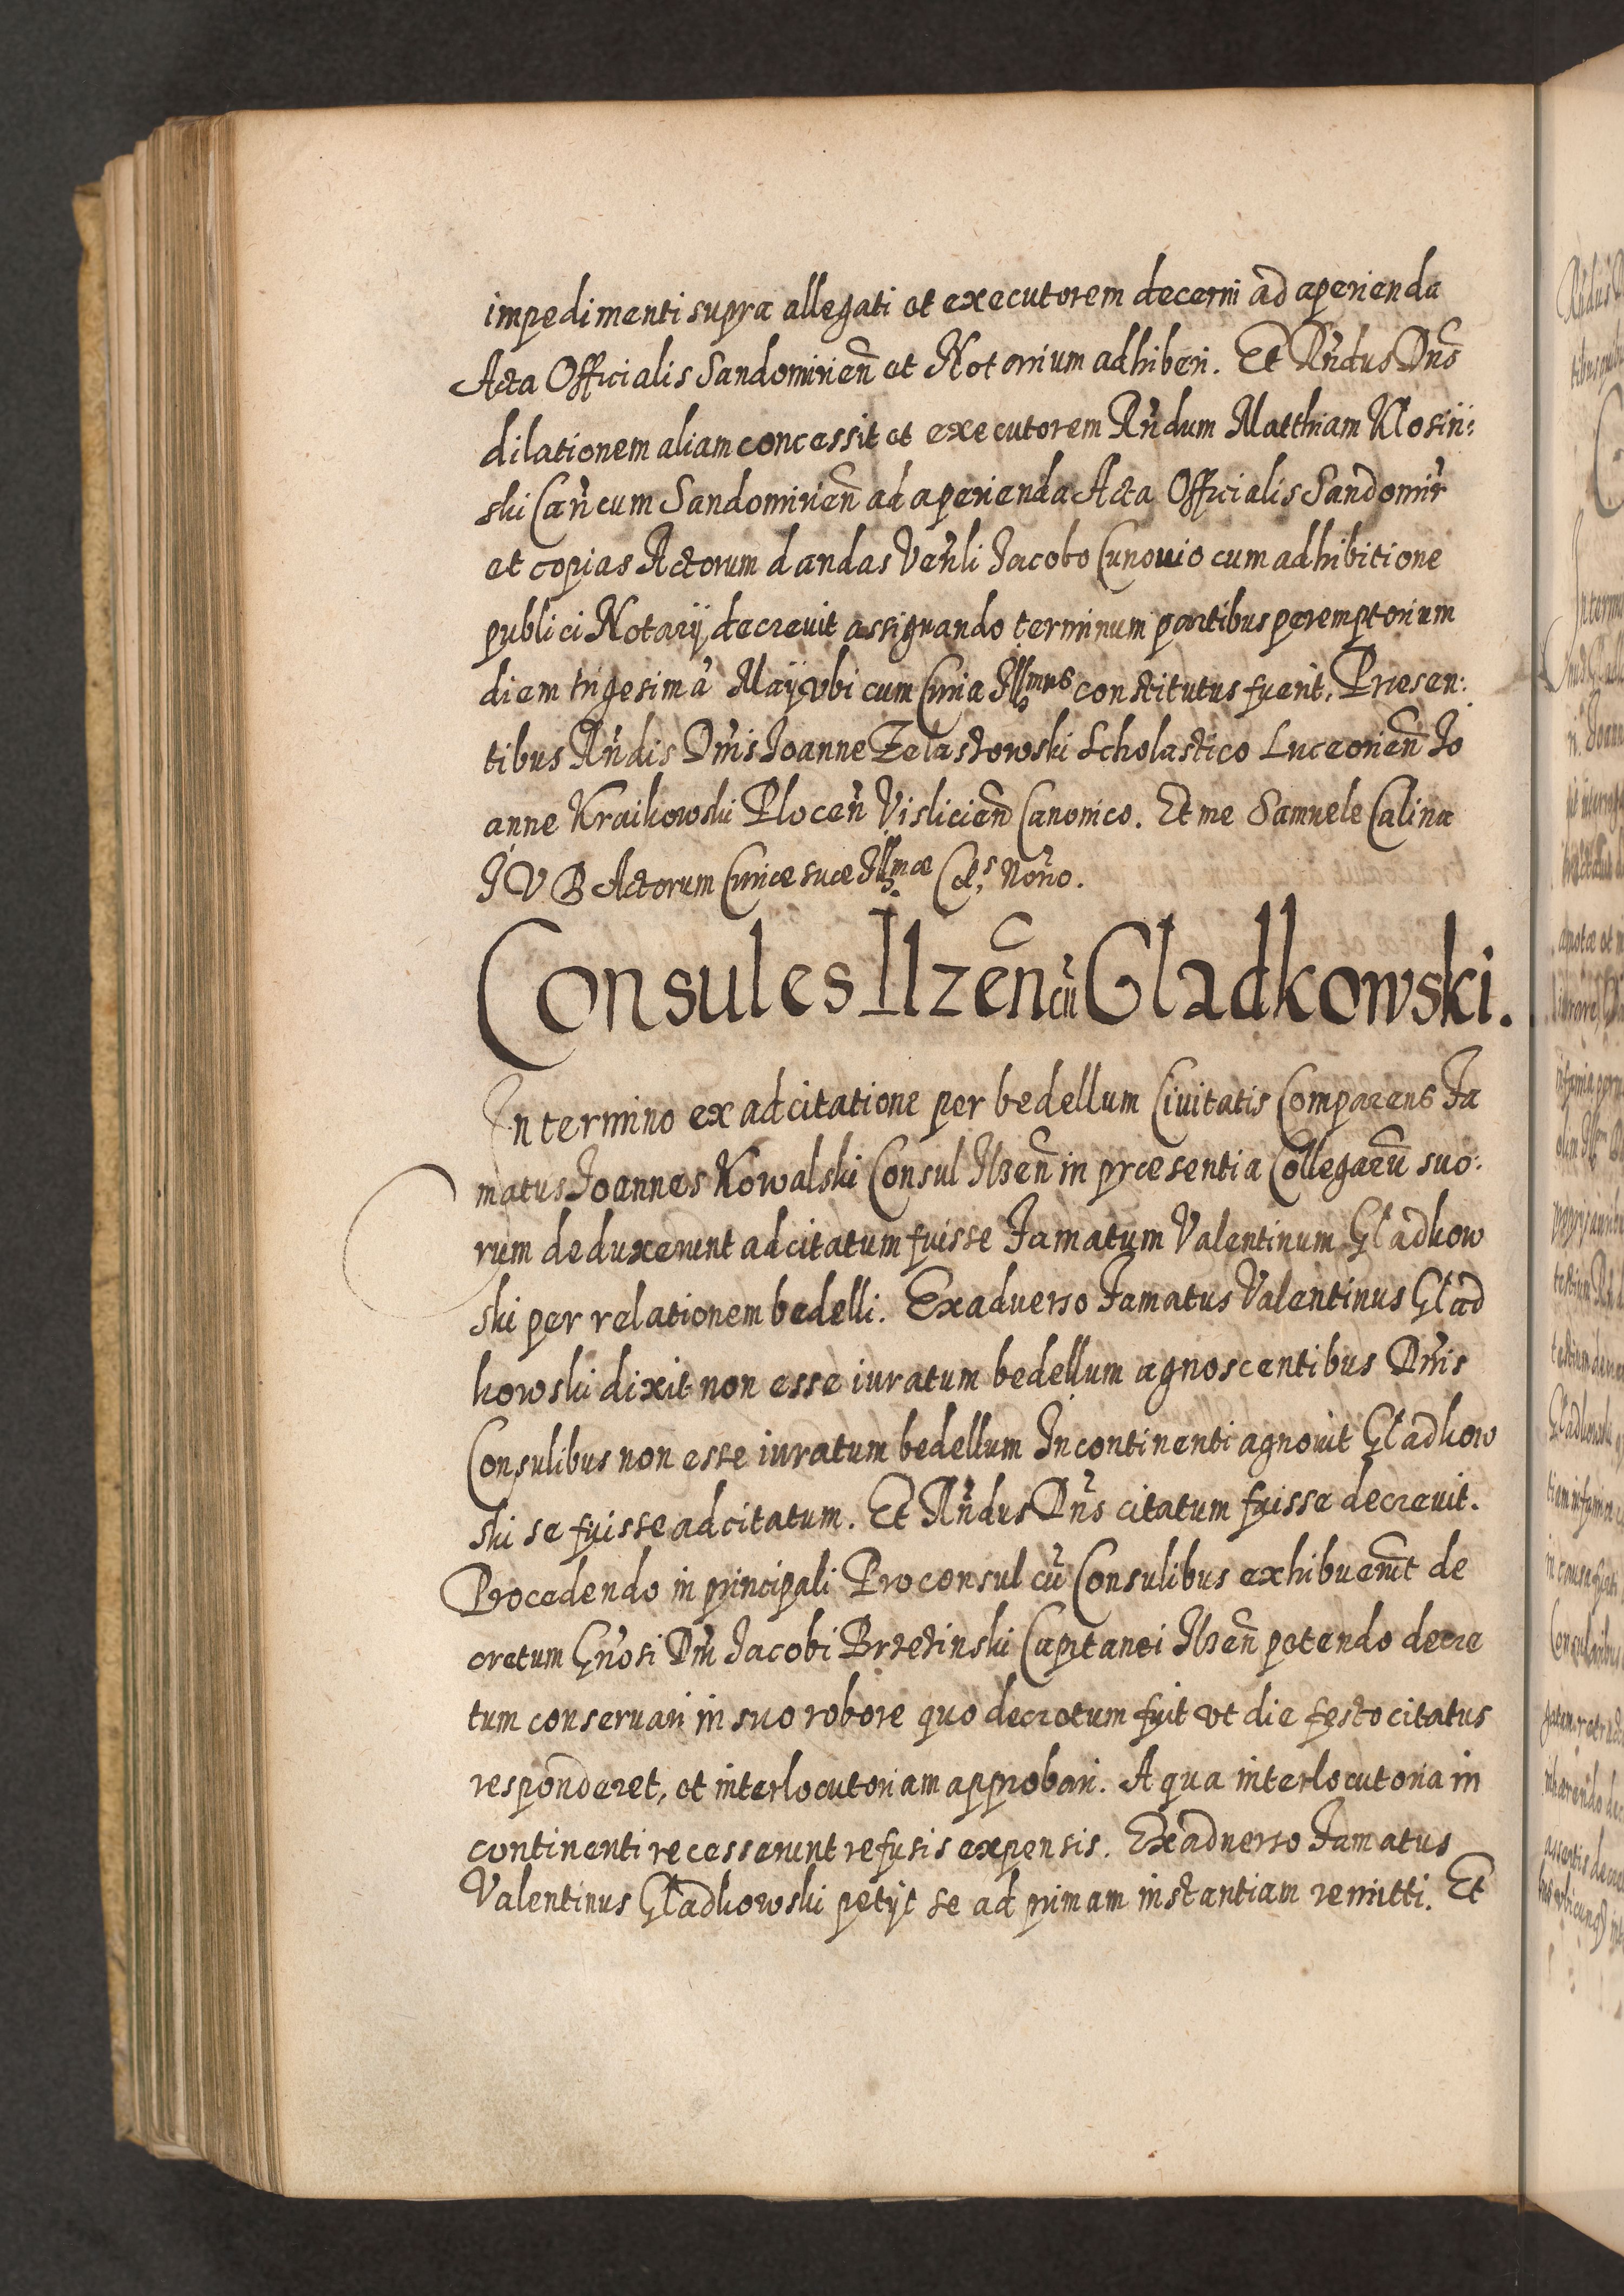 impedimenti supra allegati et executorem decerni ad aperienda
Acta Officialis Sandomirień et Notarium adhiberi. Et Rńdus Dns
dilationem aliam concessit et executorem Rńdum Matthiam Klosin:
ski Cańcum Sandomirień ad aperienda Acta Officialis Sandomir
et copias Actorum dandas Veńli Jacobo Cunouio cum adhibitione
publici Notarÿ, decreuit assignando terminum partibus peremptorium
diem trigesimã Maÿ vbi cum Curia Illmus constitutus fuerit. Præsen:
tibus Rńdis Dmis Joanne Zelastowski Scholastico Luceorień Jo
anne Kraikowski Plocen Vislicień Canonico. Et me Samuele Calina
J V B Actorum Curiæ suæ Illmæ Cels Norio.
Consules Ilzeń cũ Gladkowski.
In termino ex adcitatione per bedellum Ciuitatis Comparens Fa
matus Joannes Kowalski Consul Ilzeń in præsentia Collegarũ suo:
rum deduxerunt adcitatum fuisse Famatum Valentinum Gladkow
ski per relationem bedelli. Exaduerso Famatus Valentinus Glad
kowski dixit non esse iuratum bedellum agnoscentibus Dmis
Consulibus non esse iuratum bedellum Incontinenti agnouit Gladkow
ski se fuisse adcitatum. Et Rńdus Dns citatum fuisse decreuit.
Procedendo in principali Proconsul cũ Consulibus exhibuerũt de
cretum Gńosi Dm̃ Jacobi Brzezinski Capitanei Ilzeń petendo decre
tum conseruari in suo robore quo decretum fuit vt die festo citatus
responderet, et interlocutoriam approbari. A qua interlocutoria in
continenti recesserunt refusis expensis. Exaduerso Famatus
Valentinus Gladkowski petÿt se ad primam instantiam remitti. Et